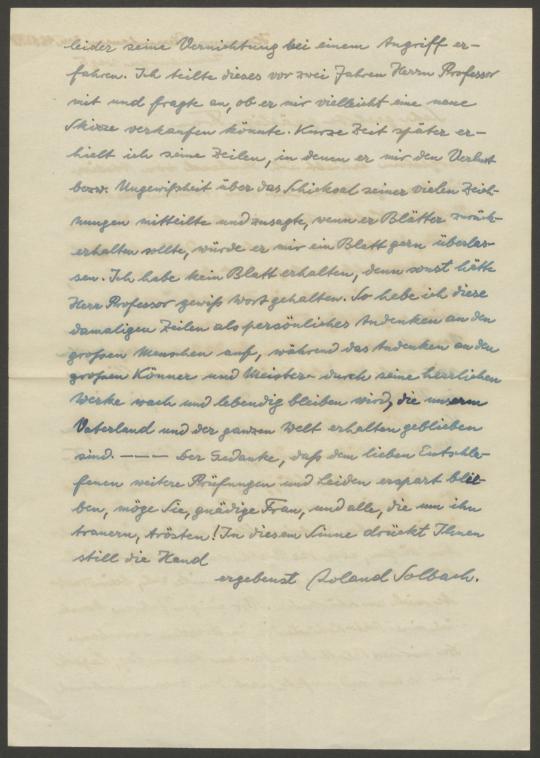 leider seine Vernichtung bei einem Angriff er-
fahren. Ich teilte dieses vor zwei Jahren Herrn Professor
mit und fragte an, ob er mir vielleicht eine neue
Skizze verkaufen könnte. Kurze Zeit später er-
hielt ich seine Zeilen, in denen er mir den Verlust
bezw. Ungewißheit über das Schicksal seiner vielen Zeich-
nungen mitteilte und zusagte, wenn er Blätter zurück-
erhalten sollte, würde er mir ein Blatt gern überlas-
sen. Ich habe kein Blatt erhalten, denn sonst hätte
Herr Professor gewiß Wort gehalten. So hebe ich diese
damaligen Zeilen als persönliches Andenken an den
großen Menschen auf, während das Andenken an den
großen Könner und Meister durch seine herrlichen
Werke wach und lebendig bleiben wird, die unserm
Vaterland und der ganzen Welt erhalten geblieben
sind. –––– Der Gedanke, daß dem lieben Entschla-
fenen weitere Prüfungen und Leiden erspart blei-
ben, möge Sie, gnädige Frau, und alle, die um ihn
trauern, trösten! In diesem Sinne drückt Ihnen
still die Hand
ergebenst Roland Solbach.